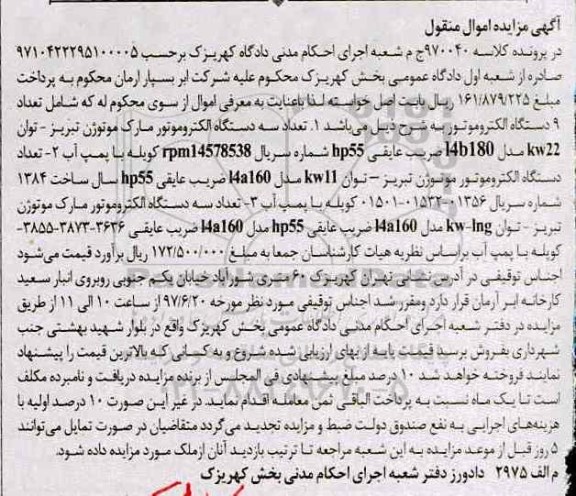 آگهی مزایده اموال منقول
در پرونده کلاسه ۹۷۰۰۴۰ج م شعبه اجرای احکام مدنی دادگاه کهریزک برحسب ۹۷۱۰۴۲۲۲۹۵۱۰۰۰۰۵
صادره از شعبه اول دادگاه عمومی بخش کهریزک محکوم علیه شرکت ابر بسپار آرمان محکوم به پرداخت
مبلغ ۱۶۱/۸۷۹/۲۲۵ ریال بابت اصل خواسته لذا باعنایت به معرفی اموال از سوی محکوم له که شامل تعداد
۹ دستگاه الکتروموتور به شرح ذیل می‌باشد ۱. تعداد سه دستگاه الکتروموتور مارک موتوژن تبریز - توان
kw22 مدل l4b180 ضریب عایقی hp55 شماره سریال rpm14578538 کوپله با پمپ آب ۲- تعداد
دستگاه الکتروموتور موتوژن تبریز – توان kw11 مدل l4a160 ضریب عایقی hp55 سال ساخت ۱۳۸۴
شماره سریال ۰۱۳۵۶-۰۱۵۳۲-۰۱۵۰۱ کوپله با پمپ آب ۳- تعداد سه دستگاه الکتروموتور مارک موتوژن
تبریز - توان kw-lng مدل l4a160 ضریب عایقی hp55 مدل l4a160 ضریب عایقی ۳۶۳۶-۳۸۷۳-۳۸۵۵-
کوپله با پمپ آب براساس نظریه هیات کارشناسان جمعا به مبلغ ۱۷۲/۵۰۰/۰۰۰ ریال برآورد قیمت می‌شود
اجناس توقیفی در آدرس نشانی تهران کهریزک ۶۰ متری شورآباد خیابان یکم جنوبی روبروی انبار سعید
کارخانه ابر آرمان قرار دارد ومقرر شد اجناس توقیفی مورد نظر مورخه ۹۷/۶/۲۰ از ساعت ۱۰ الی ۱۱ از طریق
مزایده در دفتر شعبه اجرای احکام مدنی دادگاه عمومی بخش کهریزک واقع در بلوار شهید بهشتی جنب
شهرداری بفروش برسد قیمت پایه از بهای ارزیابی شده شروع و به کسانی که بالاترین قیمت را پیشنهاد
نمایند فروخته خواهد شد ۱۰ درصد مبلغ پیشنهادی فی المجلس از برنده مزایده دریافت و نامبرده مکلف
است تا یک ماه نسبت به پرداخت الباقی ثمن معامله اقدام نماید. در غیر این صورت ۱۰ درصد اولیه با
هزینه‌های اجرایی به نفع صندوق دولت ضبط و مزایده تجدید می‌گردد متقاضیان در صورت تمایل می‌توانند
۵ روز قبل از موعد مزایده به این شعبه مراجعه تا ترتیب بازدید آنان ازملک مورد مزایده داده شود.
م الف ۲۹۷۵ دادورز دفتر شعبه اجرای احکام مدنی بخش کهریزک